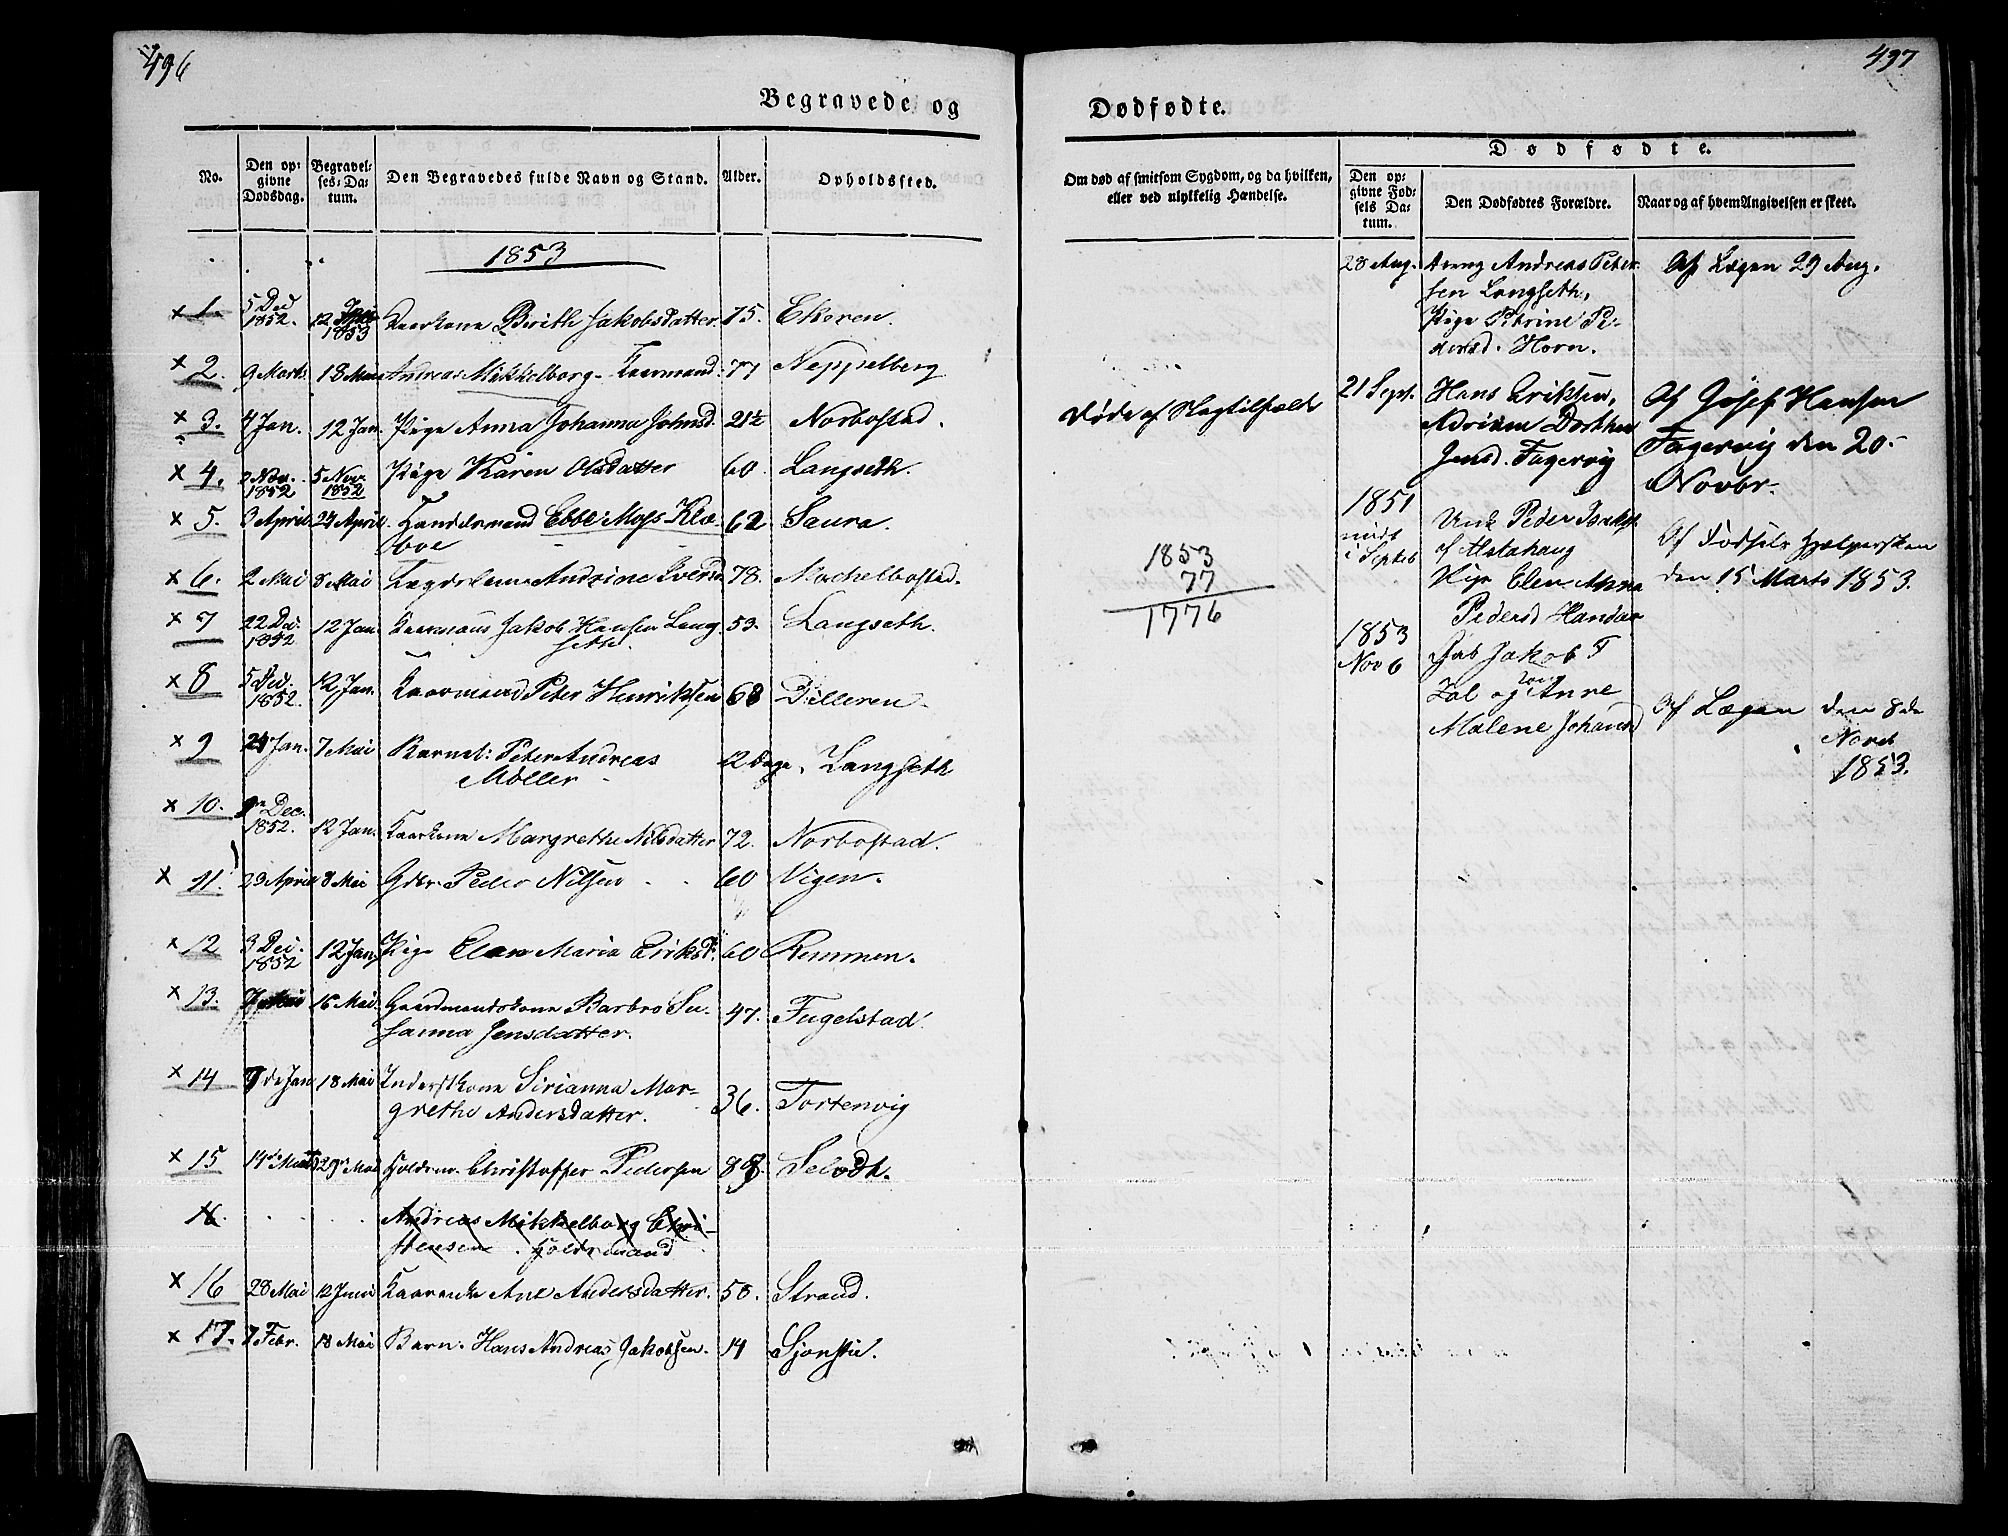 496
Begravede og
No.
Den op-
givne
Dødsdag.
Begravel-
ses-Da-
tum.
Den Begravedes fulde Navn og Stand.
Alder.
Opholdssted.
1853
1. 5 Dec 1852. 12 1853 Berith Jakobsdatter 75.
2. 9 Marts 18 Mai Andreas Mikkelborg 77 Neppelberg
3. 4 Jan. 12 Jan. Pige Anna Johanna Johnsd. 21½ Norbostad.
4. 2 Nov. 1852 5 Nov. 1852 Pige Karen Olsdatter 60. Langseth.
5. 3 April 24 April Handelsmand Ebbe Moss Klæ-
boe 62 Saura.
6. 2 Mai 8 Mai Andrine 78. Machelbostad.
7 22 Dec. 1852 12 Jan. Jakob Hansen Lang-
seth. 53. Langseth.
8 5 Dec. 1852. 12 Jan. Peter Henriksen 68 Dilleren.
9 24 Jan. 7 Mai Barnet: Peter Andreas
Møller 12 Dage. Langseth
10. Dec. 1852. 12 Jan. Margrethe Nilsdatter 72. Norbostad.
11. 29 April 8 Mai Gdbr. Peder Nilsen 60 Vigen.
12 3 Dec. 1852 12 Jan. Pige Elen Maria Eriksd. 60 Remmen.
13. 16 Mai Gaardmandskone Barbro Su-
sanna Jensdatter. 47. Fugelstad.
14 9de Jan 18 Mai Inderstkone Sirianna Mar-
grethe Andersdatter. 36. Tortenvig
15 14de Marts 29 Mai Christoffer Pedersen Selodh.
16. Andreas Mikkelborg Chri-
stensen
16 28 Mai 12 Juni Ane Andersdatter. 50. Strand.
17. 7 Febr. 18 Mai Barn. Hans Andreas Jakobsen. 14 Sjonstie.
437
Dødfødte.
Om død af smitsom Sygdom, og da hvilken,
eller ved ulykkelig Hændelse.
Dødfødte.
Den op-
givne Fød-
sels Da-
tum.
Den Dødfødtes Forældre.
Naar og af hvem Angivelsen er skeet.
28 Aug. Andreas Peter-
sen Langseth,
Pige Petrine Pe-
dersd. Horn. Af Lægen 29 Aug.
Døde af Slagtilfælde
21 Sept. Hans Eriksen,
Dorthea
Jensd. Fagervig Af Josef Hansen
Fagervig den 20
Novbr.
1853
77
1776
1851
midt
i Septeb Peder
af Alstahaug
Pige Elen Anna
Pedersd Af Fødsels Hjælpersken
den 15 Marts 1853.
1853
Nov 6 Jakob
og Anne
Malene Johansd Af Lægen den 8de
Novb
1853.